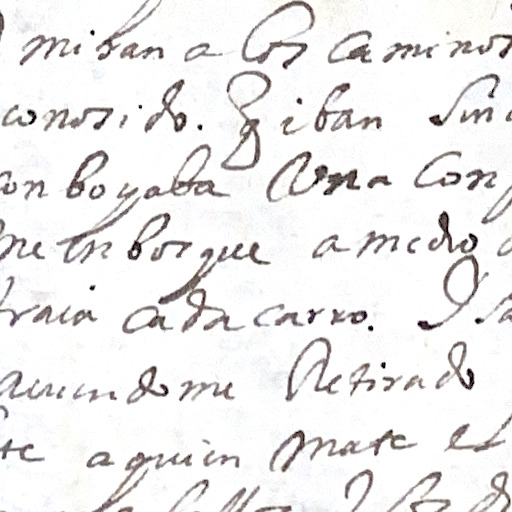 miban a los caminos
conosido. Q iban sin
conboyaba Una Con
me en bosque amedio
traia cada carro. Y sa
auiendome Retirado
te aquien mate el